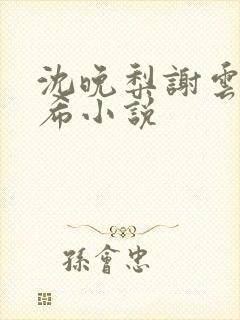 沈晚梨謝雲
希小說
孫會忠